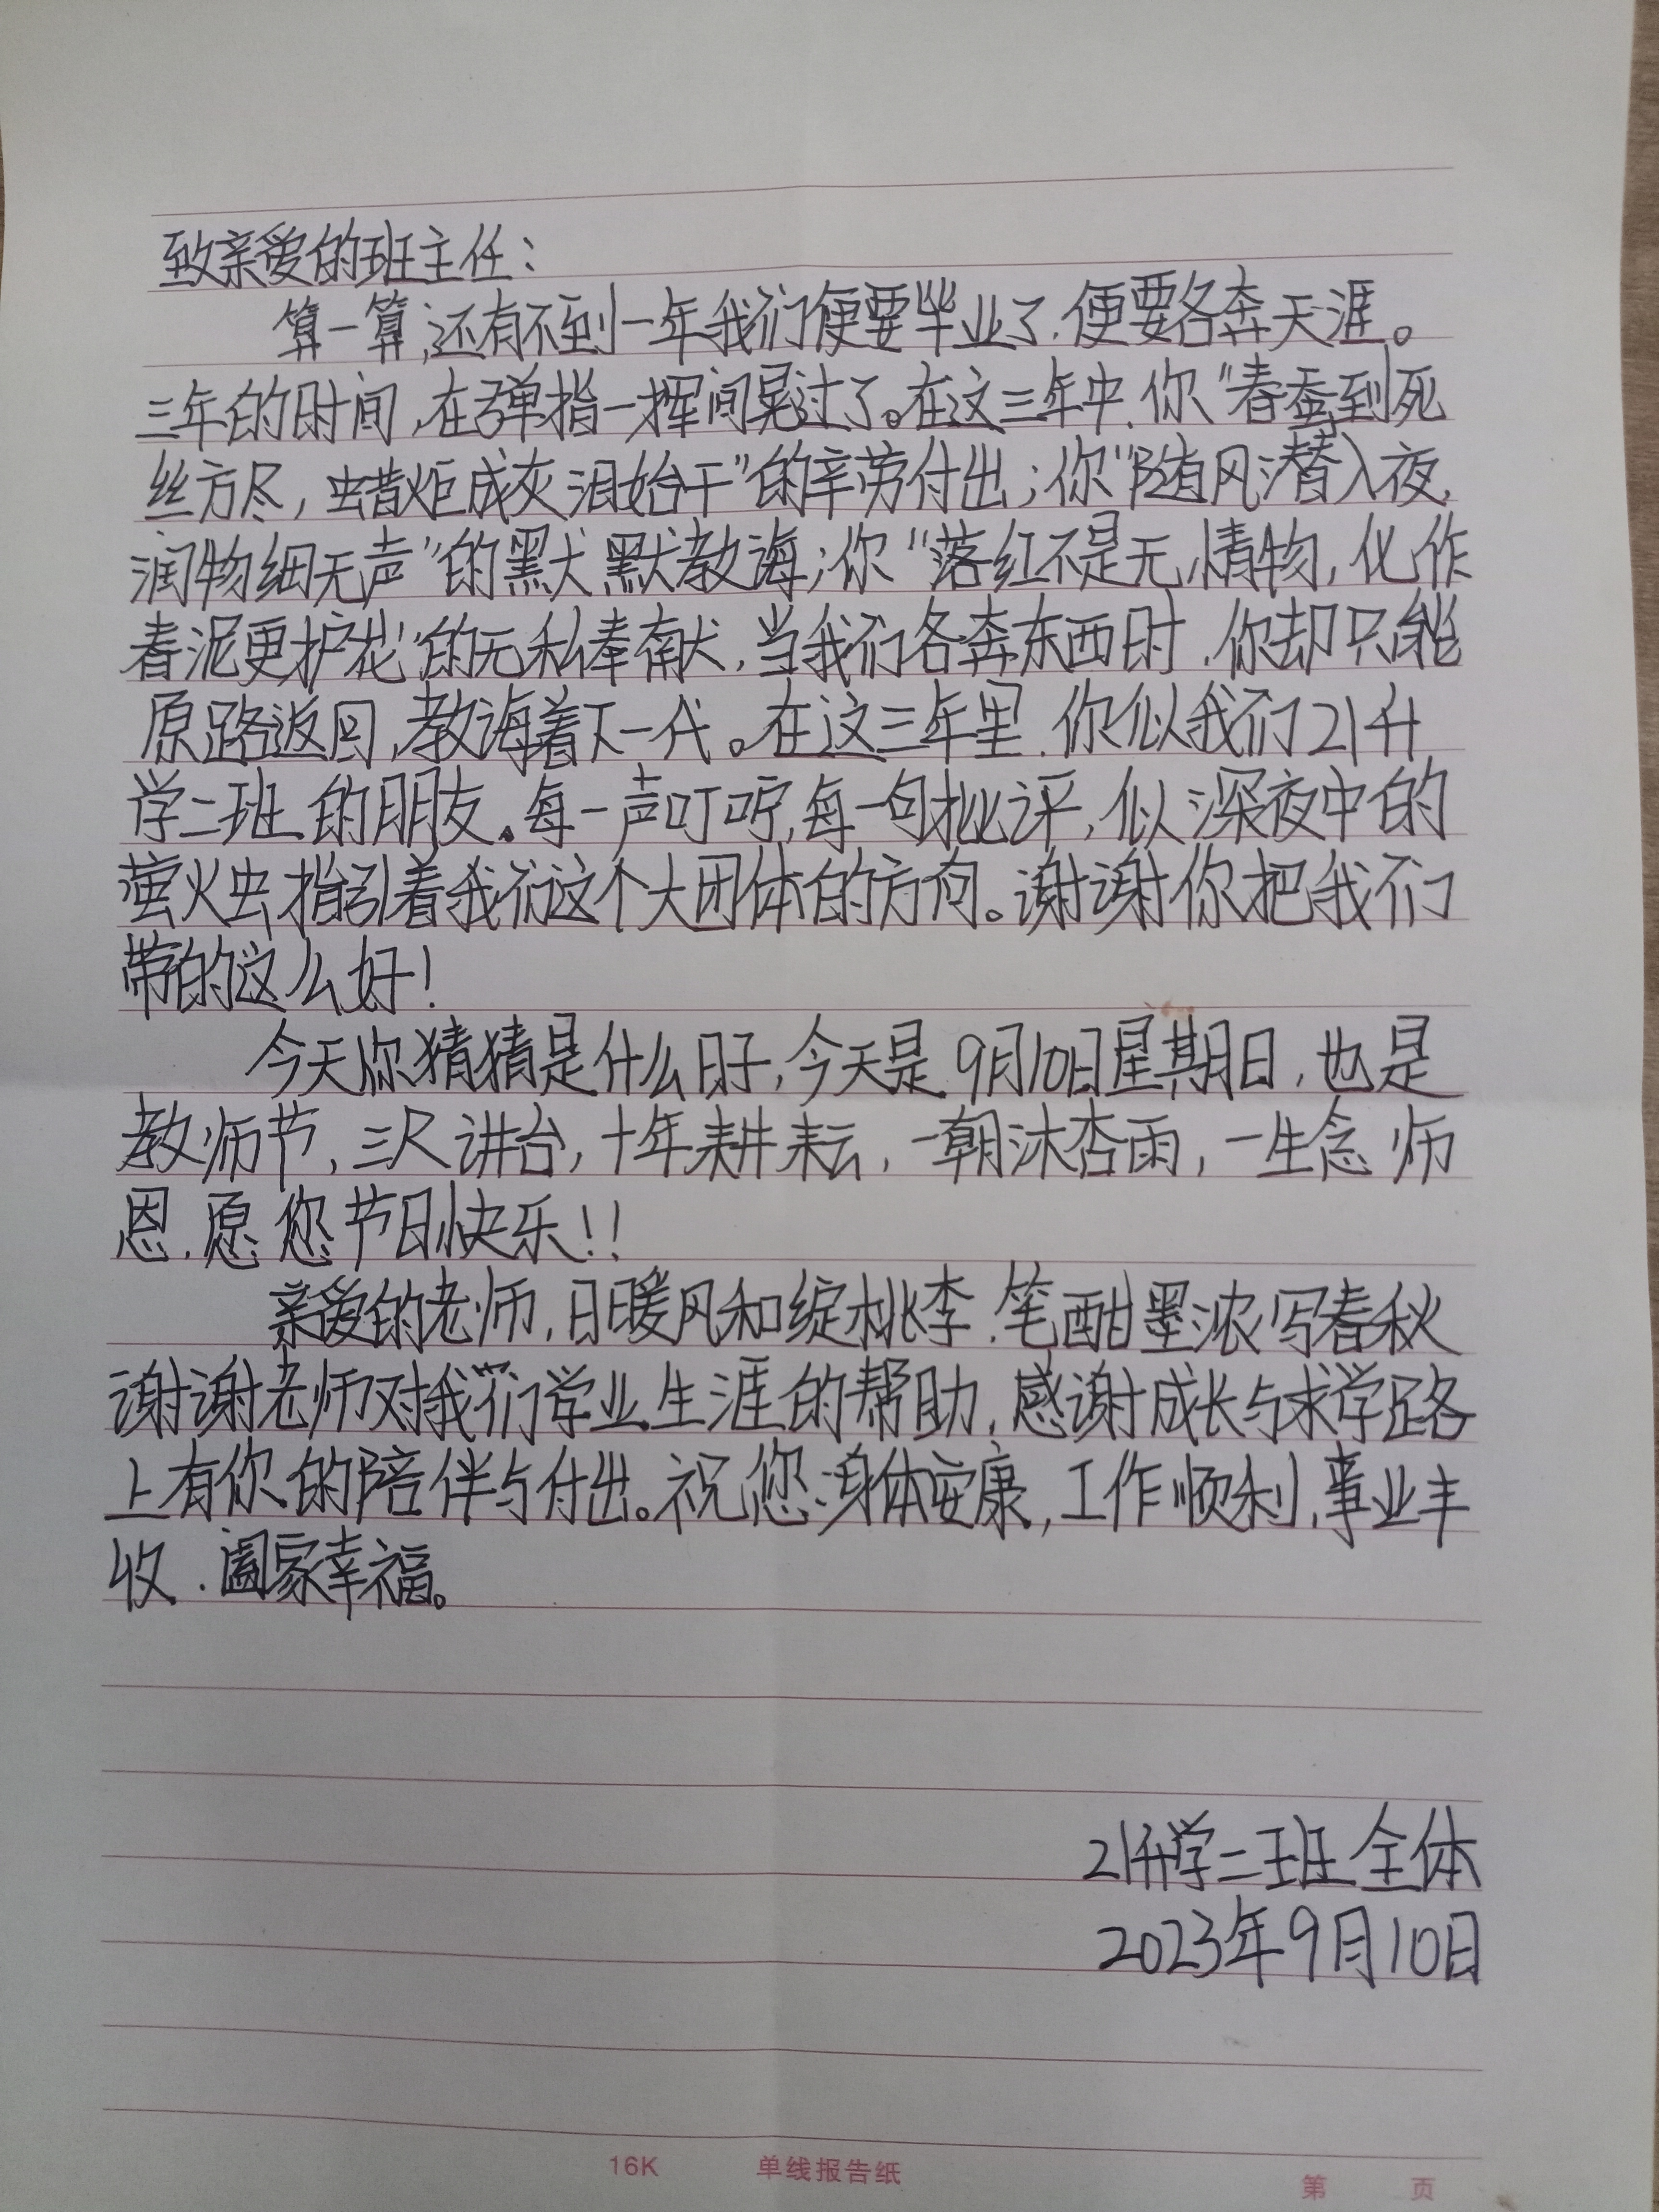 致亲爱的班主任：
算一算,还有不到一年我们便要毕业了,便要各奔天涯。
三年的时间,在弹指一挥间晃过了。在这三年中,你“春蚕到死
丝方尽,蜡炬成灰泪始干”的辛劳付出;你“随风潜入夜,
润物细无声”的默默教诲;你“落红不是无情物,化作
春泥更护花”的无私奉献,当我们各奔东西时,你却只能
原路返回,教诲着下一代。在这三年里,你似我们21升
学二班的朋友。每一声叮咛,每一句批评,似深夜中的
萤火虫指引着我们这个大团体的方向。谢谢你把我们
带的这么好!
今天你猜猜是什么日子,今天是9月10日星期日,也是
教师节,三尺讲台,十年耕耘,一朝沐杏雨,一生念师
恩,愿您节日快乐!!
亲爱的老师,日暖风和绽桃李,笔酣墨浓写春秋
谢谢老师对我们学业生涯的帮助,感谢成长与求学路
上有你的陪伴与付出。祝您身体安康,工作顺利,事业丰
收,阖家幸福。
21升学二班全体
2023年9月10日
16K 单线报告纸
第 页